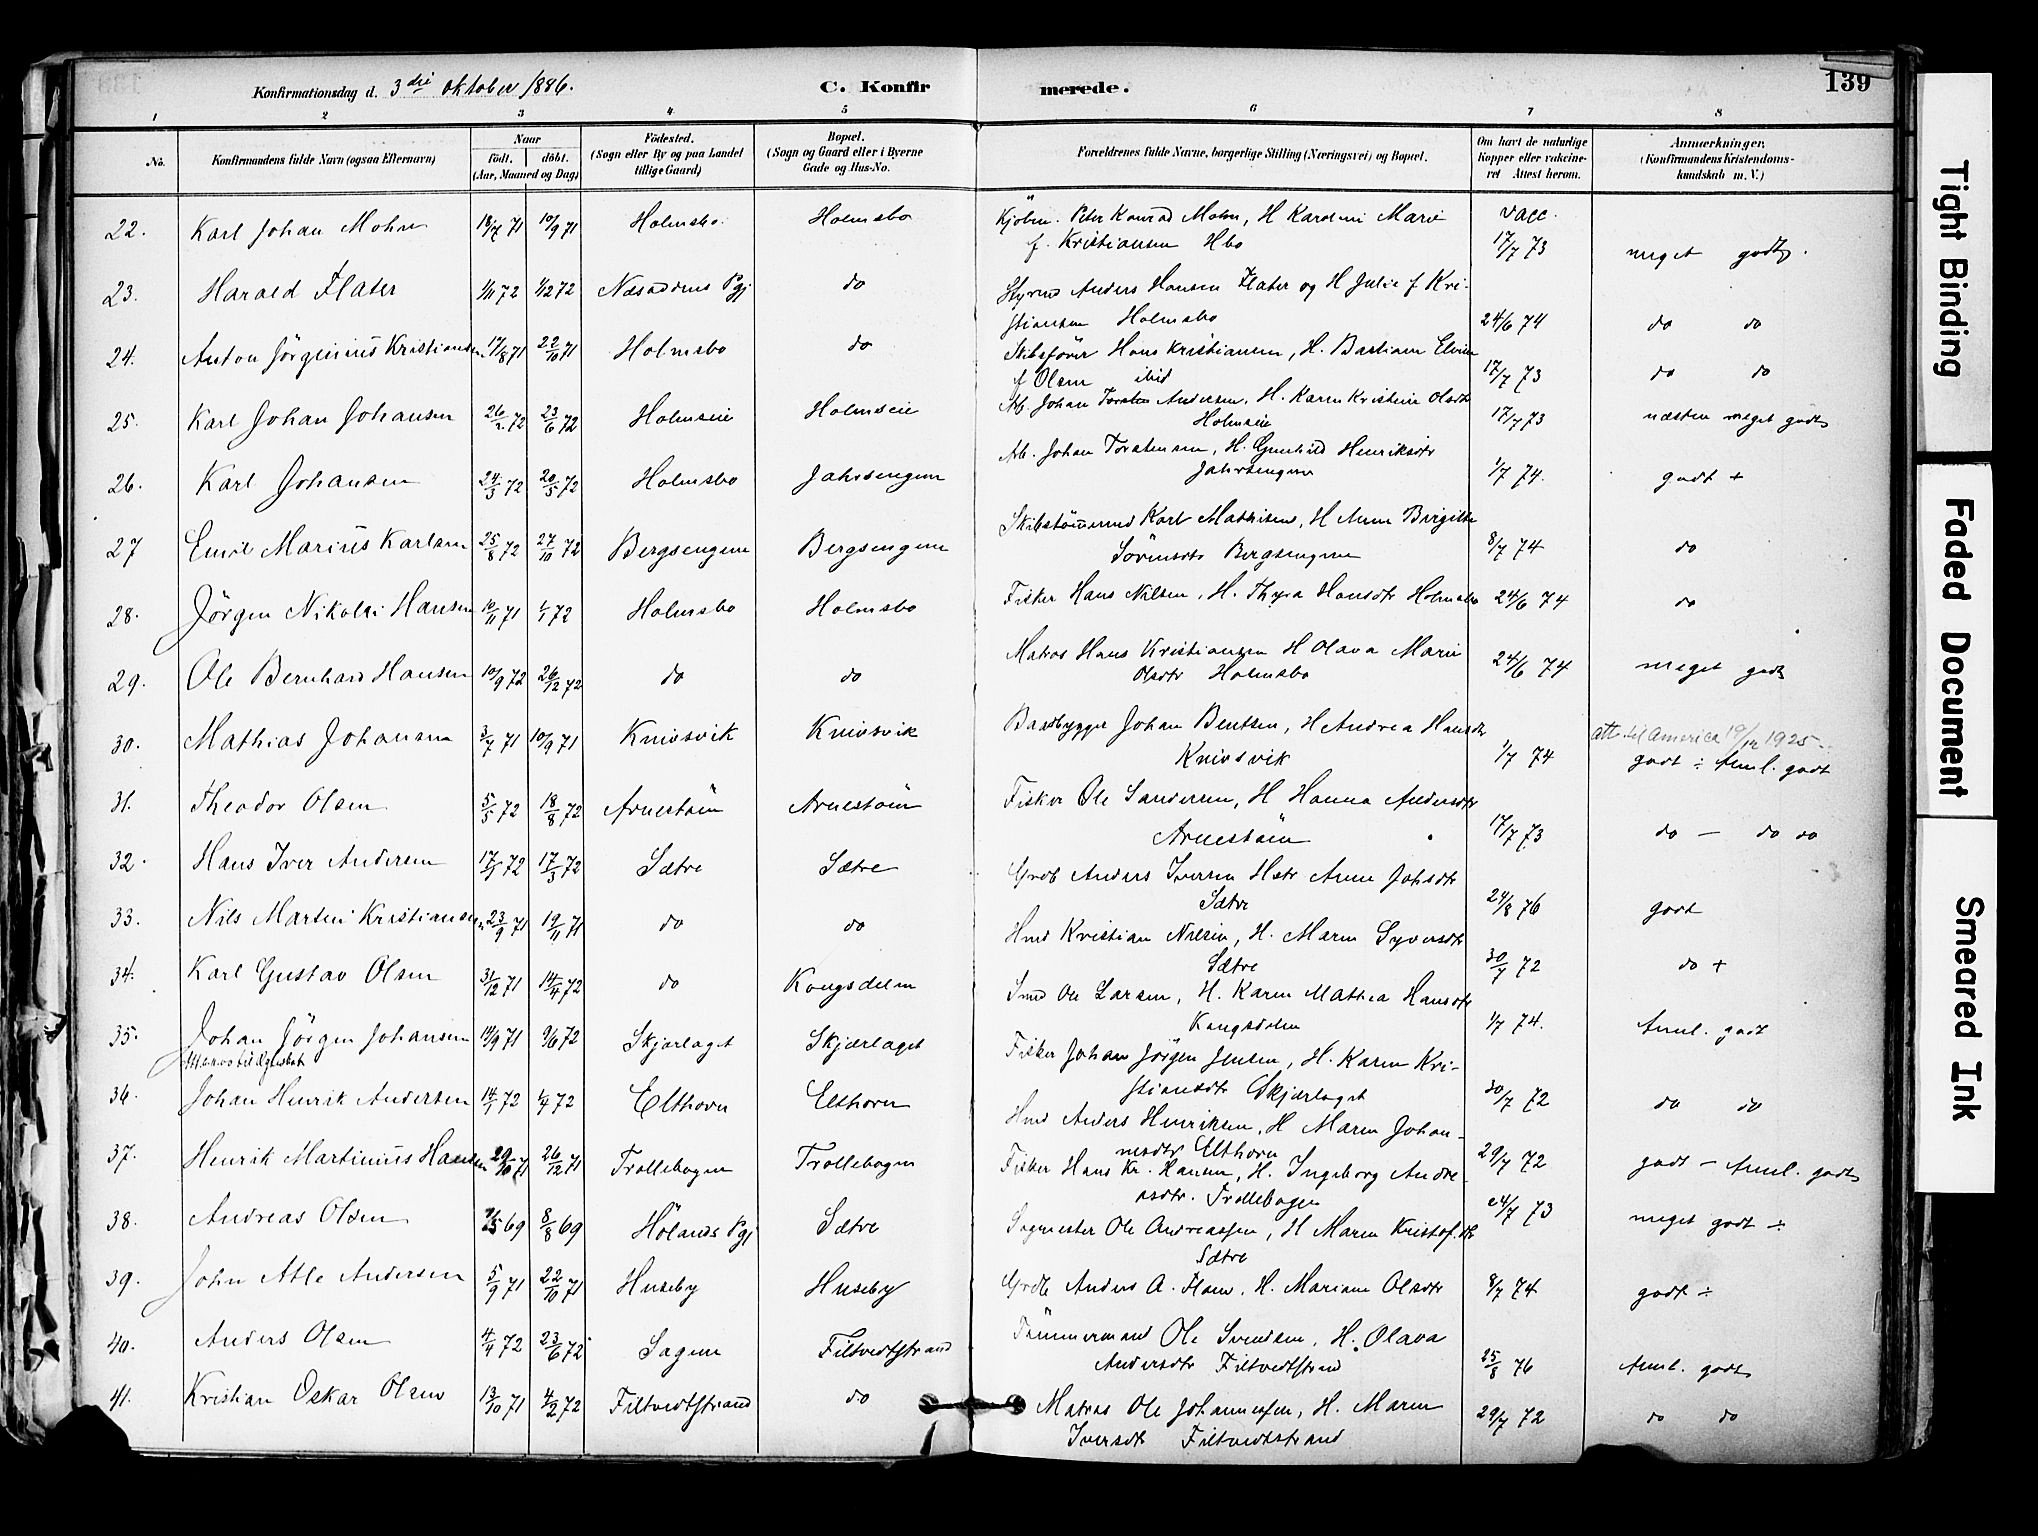 Konfirmationsdag d. 3die oktober 1886. C. Konfirmerede. 139
1 2 3 4 5 6 7 8
No. Konfirmandens fulde Navn (ogsaa Efternavn) Naar födt. döbt. (Aar, Maaned og Dag) Födested. (Sogn eller By og paa Landet tillige Gaard) Bopæl. (Sogn og Gaard eller i Byerne Gade og Hus-No. Forældrenes fulde Navne, borgerlige Stilling (Næringsvei) og Bopæl. Om havt de naturlige Kopper eller vakcineret Attest herom. Anmærkninger, (Konfirmandens Kristendomskundskab m. V.)
22. Karl Johan Mohn 18/7 71 10/9 71 Holmsbo. Holmsbo Kjöbm. Peter Konrad Mohn, H Karolini Marie vacc.
f. Kristiansen Hbo 17/7 73 meget godt.
23. Harald Flater 1/11 72 1/12 72 Næsoddens Pgj do Styrmd Anders Hansen Flater og H Julie f Kri-
stiansen Holmsbo 24/6 74 do do
24. Anton Jörginius Kristiansen 17/8 71 22/10 71 Holmsbo do Skibsförer Hans Kristiansen, H. Bastiane Elvine
f Olsen ibid 17/7 73 do do
25. Karl Johan Johansen 26/2 72 23/6 72 Holmseie Holmseie Arb. Johan Andersen, H. Karen Kristine Olsdtr
Holmseie 17/7 73 næsten meget godt
26. Karl Johansen 24/3 72 20/5 72 Holmsbo Jahrsengene Arb. Johan Torstensen, H. Gunhild Henriksdtr
Jahrsengene 1/7 74. godt +
27 Emil Marius Karlsen 25/8 72 27/10 72 Bergsengene Bergsengene Skibstömmermd Karl Mathisen, H Anne Birgitte
Sörensdtr Bergsengene 8/7 74 do
28. Jörgen Nikolai Hansen 10/11 71 1/1 72 Holmsbo Holmsbo Fisker Hans Nilsen, H. Thyra Hansdtr Holmsbo 24/6 74 do
29. Ole Bernhard Hansen 10/9 72 26/12 72 do do Matros Hans Kristiansen H Olava Marie
Olsdtr Holmsbo 24/6 74 meget godt
30. Mathias Johansen 3/7 71 10/9 71 Knivsvik Knivsvik Baadbygger Johan Bentsen, H Andrea Hansdtr att. til America 19/12 1925
Knivsvik 1/7 74 godt ÷ Aml. godt
31. Theodor Olsen 5/5 72 18/8 72 Arnestöen Arnestöen Fisker Ole Sandersen, H Hanna Andersdtr
Arnestöen 17/7 73 do – do do
32. Hans Iver Andersen 17/1 72 17/3 72 Sætre Sætre Grdb Anders Iversen Hstr Anne Johsdtr
Sætre 24/8 76 godt
33. Nils Martin Kristiansen 23/9 71 19/11 71 do do Hmd Kristian Nilsen, H. Maren Syversdtr
Sætre 30/7 72 do +
34. Karl Gustav Olsen 31/12 71 14/4 72 do Kongsdelen Smd Ole Larsen, H. Karen Mathea Hansdtr
Kongsdelen 1/7 74. Aml. godt
35. Johan Jörgen Johansen 14/9 71 9/6 72 Skjærlaget Skjærlaget Fisker Johan Jörgen Jensen, H. Karen Kri-
stiansdtr Skjærlaget 30/7 72 do do
36. Johan Henrik Andersen 14/1 72 1/4 72 Elthoven Elthoven Hmd Anders Henriksen, H Maren Johan-
nesdtr Elthoven 29/7 72 godt – Aml. godt
37. Henrik Martinius Hansen 29/10 71 26/12 71 Trollebogen Trollebogen Fisker Hans Kr. Hansen, H. Ingeborg Andre-
asdtr. Trollebogen 24/7 73
38. Andreas Olsen 69 8/8 69 Hölands Pgj Sætre Sagmester Ole Andreassen, H Maren Kristof.dtr meget godt ÷
Sætre
39. John Atle Andersen 5/9 71 22/10 71 Huseby Huseby Grdb Anders A. H. Mariane Olsdtr 8/7 74 godt ÷
40. Anders Olsen 4/4 72 23/6 72 Sagene Filtvedtstrand Tömmermand Ole Svendsen, H. Olava
Andersdtr Filtvedtstrand 25/8 76 Aml. godt
41. Kristian Oskar Olsen 13/10 71 4/2 72 Filtvedtstrand do Matros Ole Johannesen, H. Maren
Iversdtr Filtvedtstrand 29/7 72 do do
Tight Binding
Faded Document
Smeared Ink